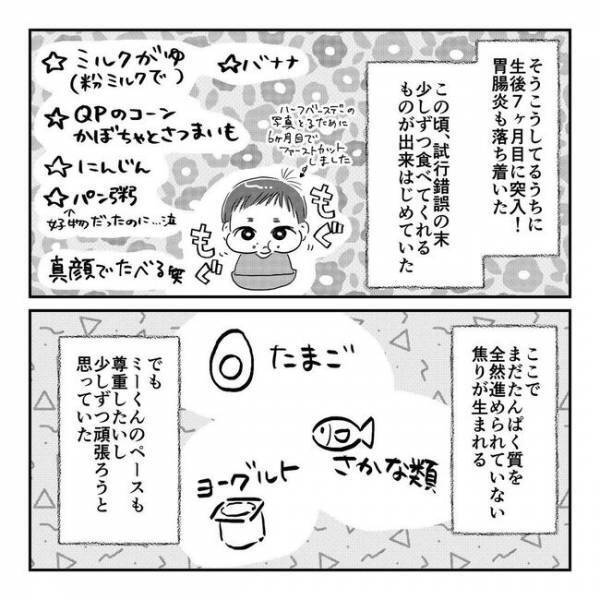 そうこうしてるうちに
生後7ヶ月目に突入！
胃腸炎も落ち着いた
この頃、試行錯誤の末
少しずつ食べてくれる
ものが出来はじめていた
☆ミルクがゆ
(粉ミルクで)
☆バナナ
☆QPのコーン
かぼちゃとさつまいも
☆にんじん
☆パン粥
好物だったのに…泣
真顔でたべる笑
ハーフバースデーの
写真とるために
6ヶ月目で
ファーストカット
しました
もぐ
もぐ
ここで
まだたんぱく質を
全然進められていない
焦りが生まれる
たまご
さかな類
ヨーグルト
でも
ミーくんのペースも
尊重したいし
少しずつ頑張ろうと
思っていた